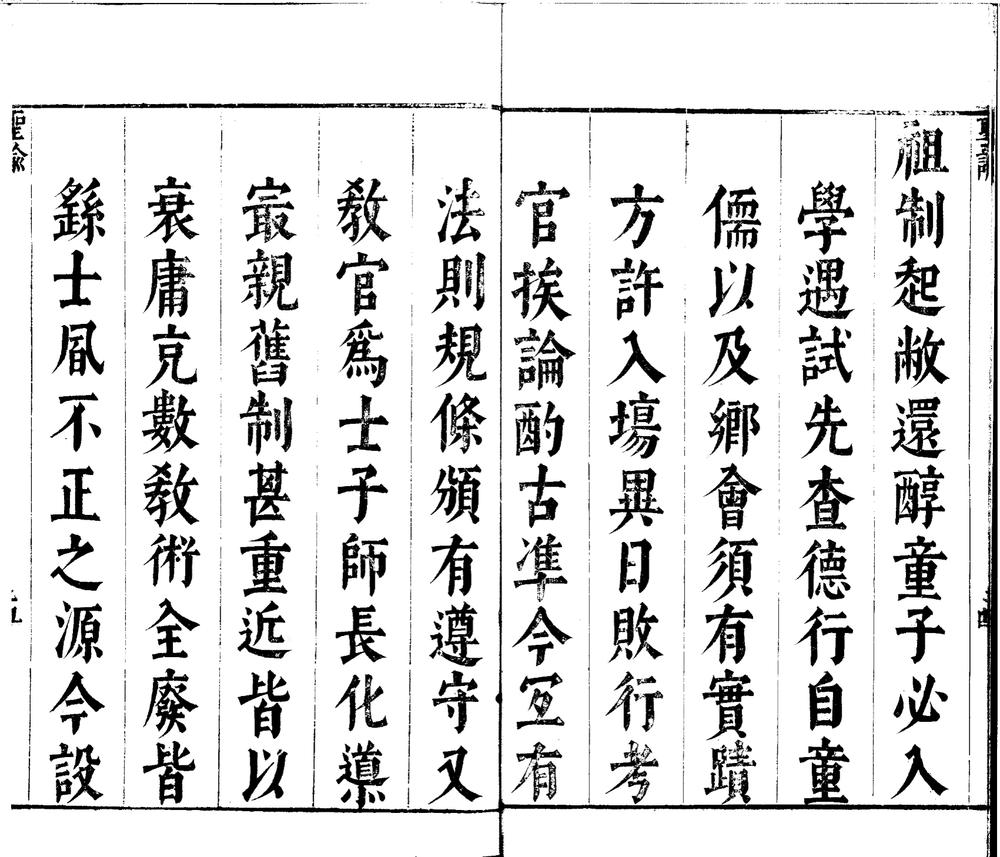 祖制起敝還醇童子必入
學遇試先查德行自童
儒以及鄉會須有實蹟
方許入塲異日敗行考
官挨論酌古凖今宜有
法則規條頒有遵守又
教官爲士子師長化導
最親舊制甚重近皆以
衰庸克數教術全廢皆
繇士風不正之源今設
聖諭